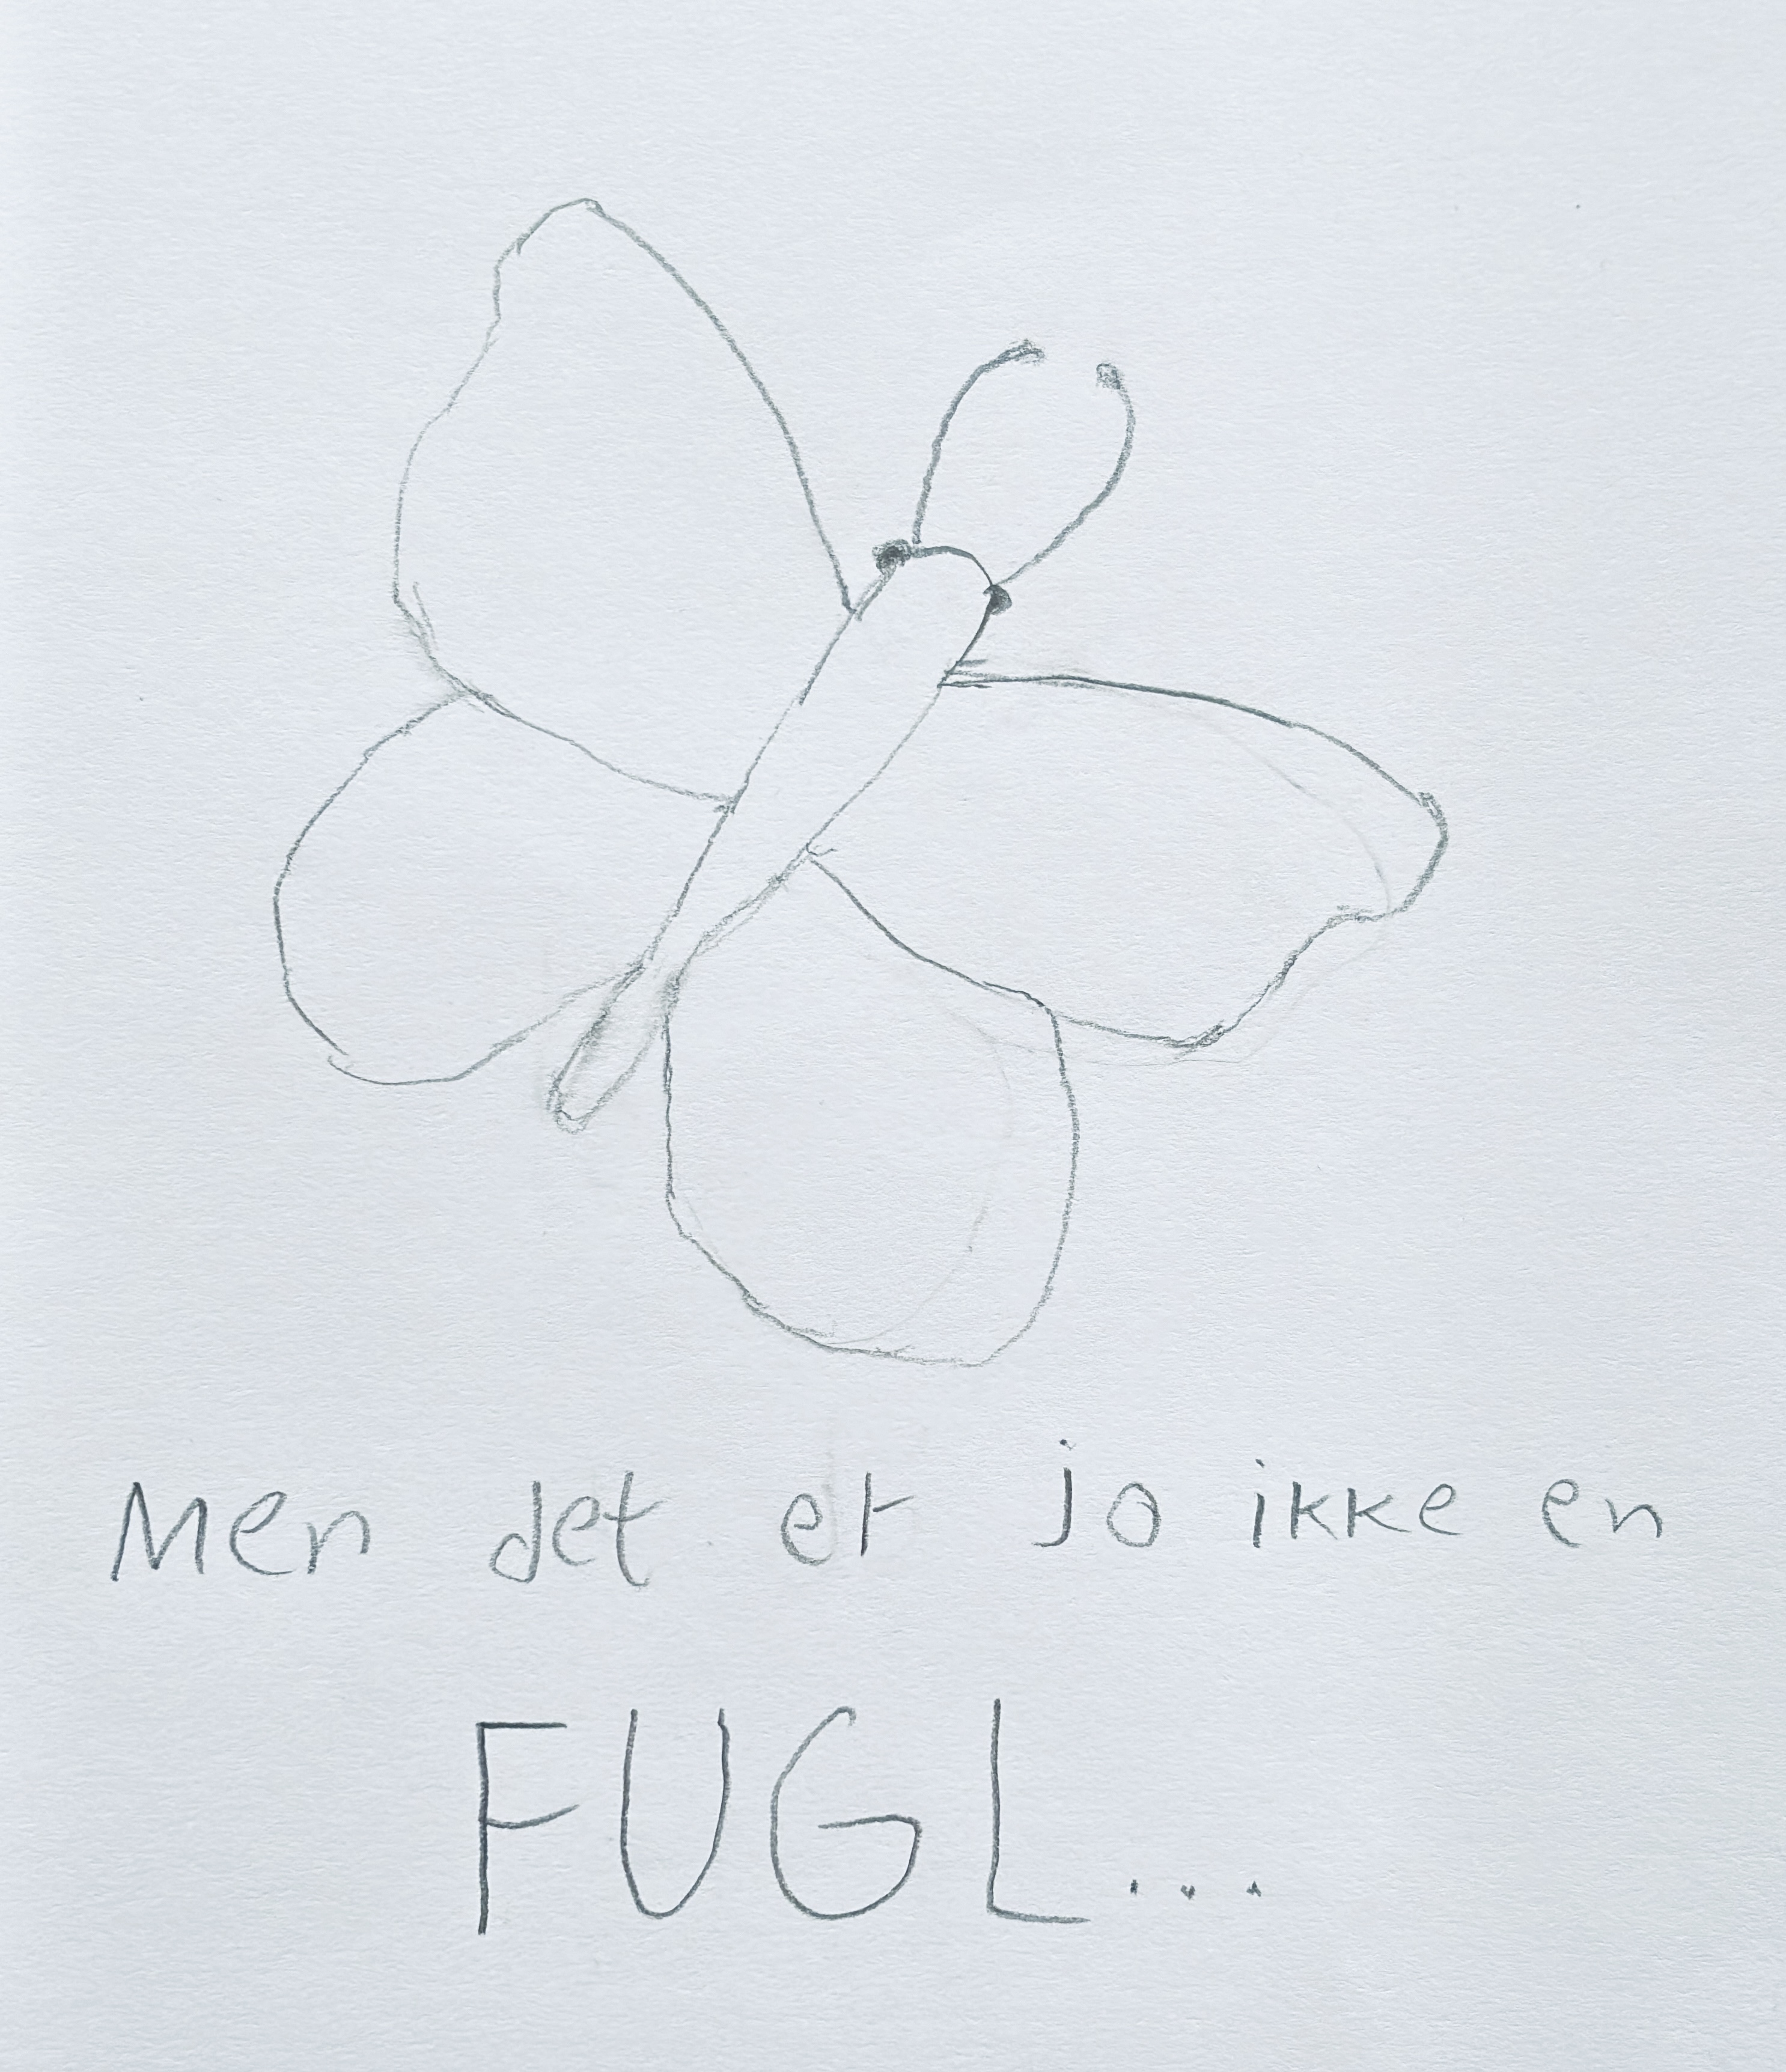 Men det er jo ikke en
FUGL...